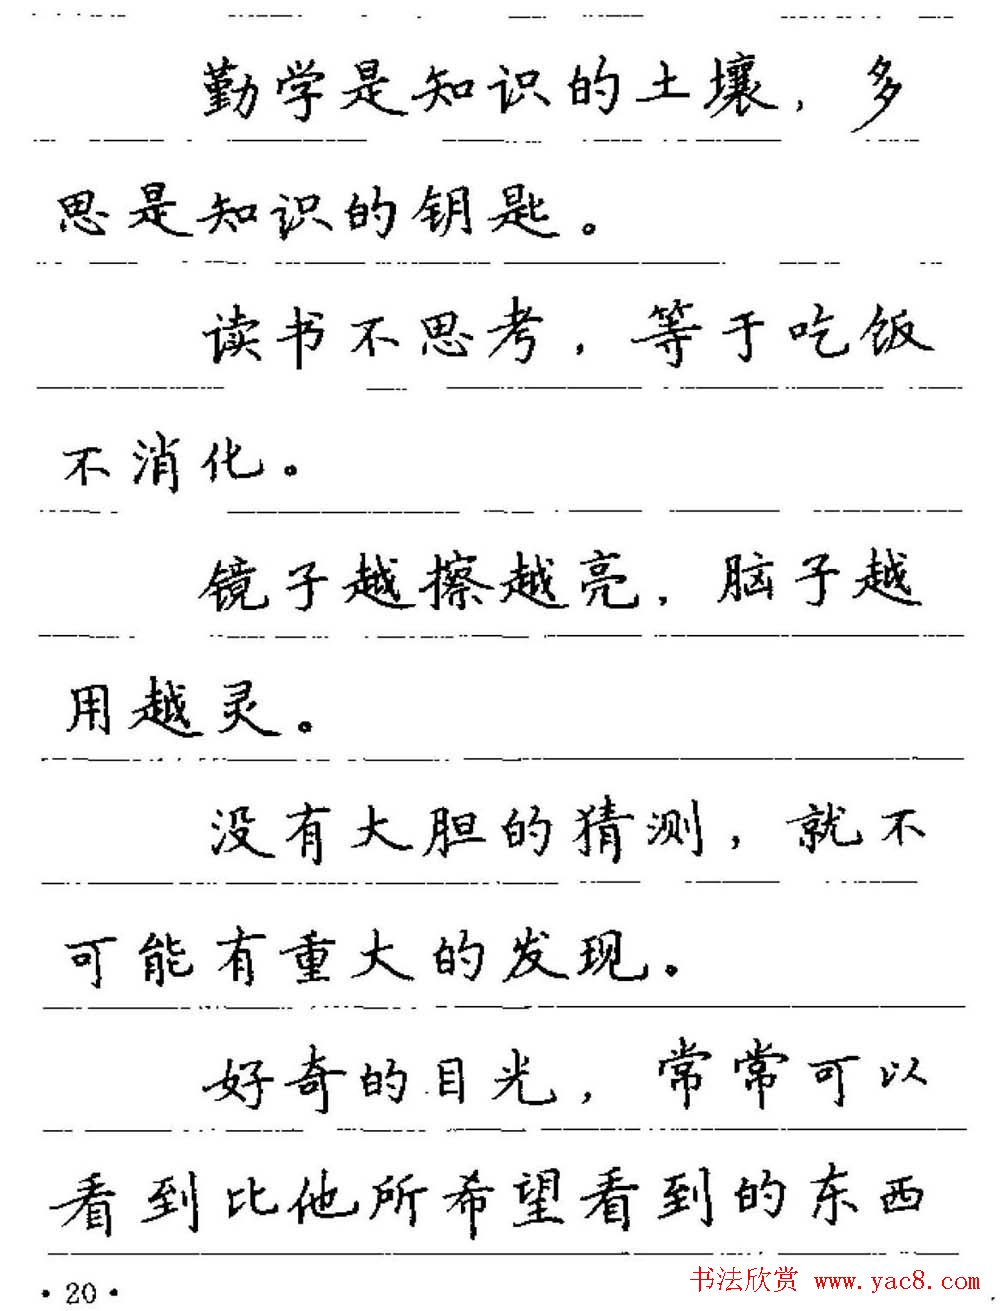 勤学是知识的土壤，多
思是知识的钥匙。
读书不思考，等于吃饭
不消化。
镜子越擦越亮，脑子越
用越灵。
没有大胆的猜测，就不
可能有重大的发现。
好奇的目光，常常可以
看到比他所希望看到的东西
·20·
书法欣赏 www.yac8.com